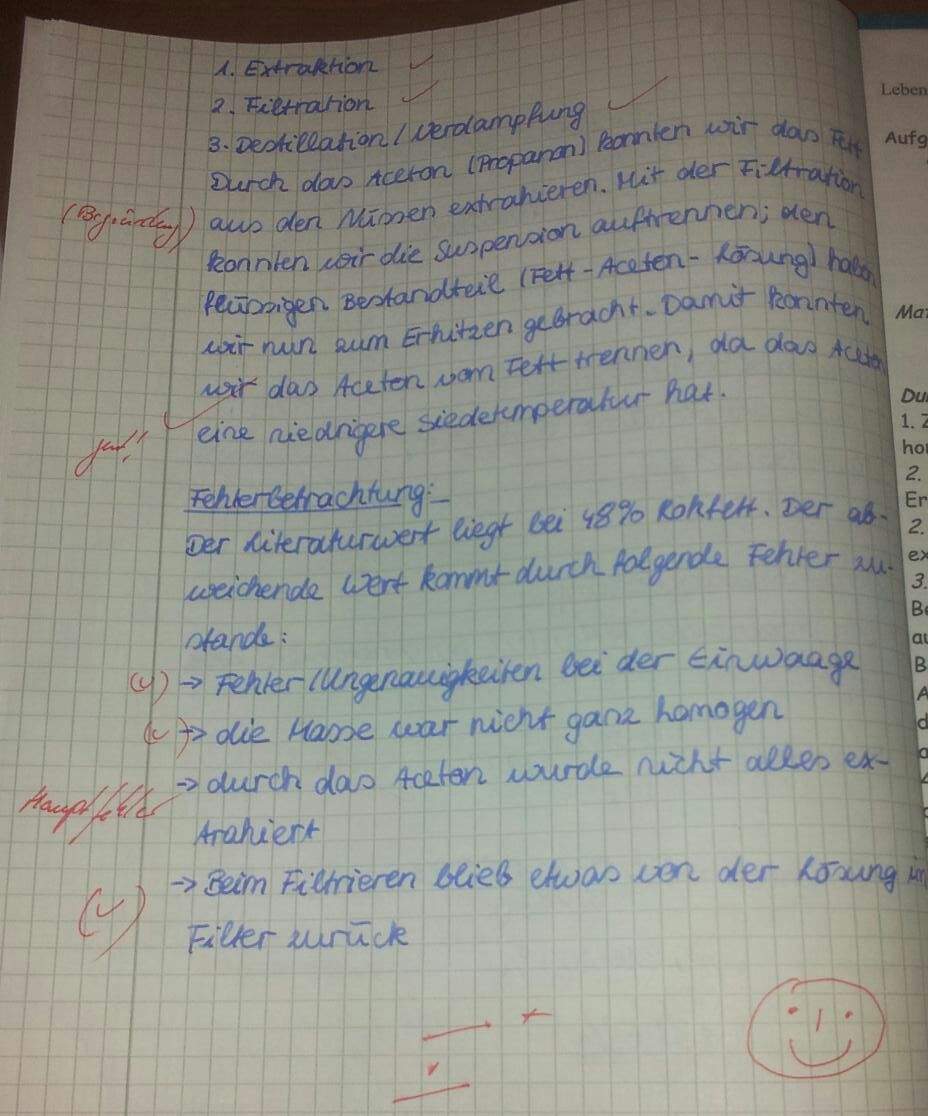 1. Extraktion
2. Filtration
3. Destillation/Verdampfung
Durch das Aceton (Propanon) konnten wir das Fett
(Begründung) aus den Nüssen extrahieren. Mit der Filtration
konnten wir die Suspension auftrennen; den
flüssigen Bestandteil (Fett-Aceten-Lösung) haben
wir nun zum Erhitzen gebracht. Damit konnten
wir das Aceten vom Fett trennen, da das Aceten
eine niedrigere Siedetemperatur hat.
Fehlerbetrachtung:
Der Literaturwert liegt bei 48% Rohfett. Der ab-
weichende Wert kommt durch folgende Fehler zu-
stande:
→ Fehler/Ungenauigkeiten bei der Einwaage
→ die Masse war nicht ganz homogen
→ durch das Aceten wurde nicht alles ex-
Hauptfehler
trahiert
→ Beim Filtrieren blieb etwas von der Lösung im
Filter zurück
Leben
Aufg
Mat
Du
1. Z
hor
2.
Er
2.
ex
3.
Be
au
B
A
d